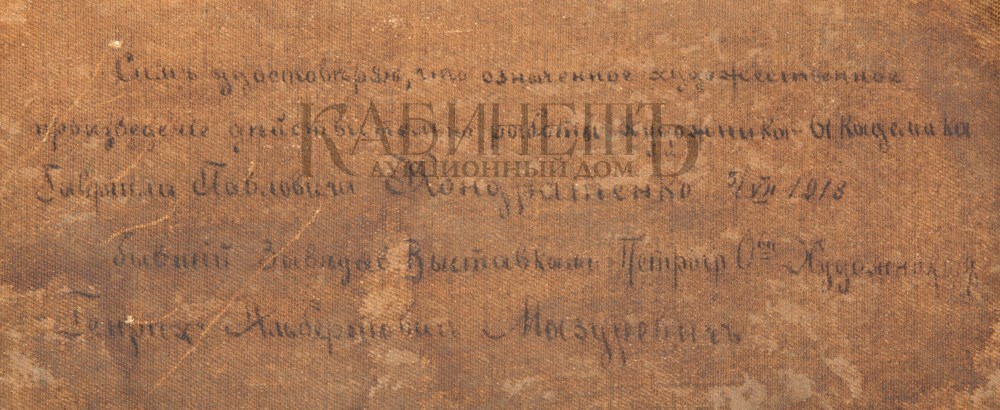 Симъ удостовѣряю, что означенное художественное
произведенiе дѣйствительно работы художника-Академика
Гаврiила Павловича Кондратенко 3/VII 1918
бывшiй Завѣдыв Выставками Петрогр Оба Художниковъ
Генрихъ Альбертовичъ Мазуревичъ
КАБИНЕТЪ
АУКЦИОННЫЙ ДОМ